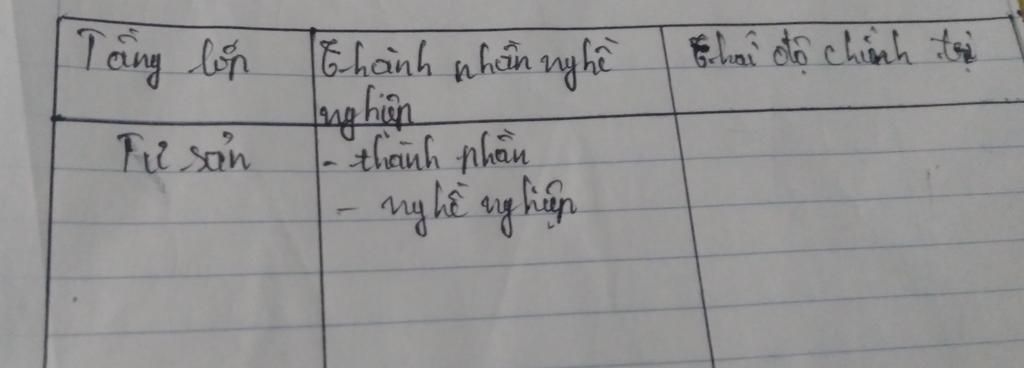 Tầng lớp
Thành phần nghề
nghiệp
Thái độ chính trị
Tư sản
- thành phần
- nghề nghiệp